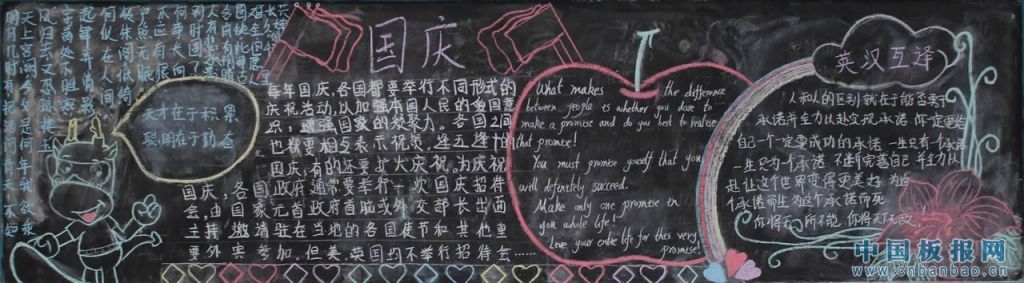 国庆
每年国庆,各国都要举行不同形式的
庆祝活动,以加强本国人民的爱国意
识,增强国家的凝聚力。各国之间
也都要相互表示祝贺,逢五逢十的
国庆,有的还要扩大庆祝。为庆祝
国庆,各国政府通常要举行一次国庆招待
会,由国家元首政府首脑或外交部长出面
主持,邀请驻在当地的各国使节和其他重
要外宾参加。但美、英国均不举行招待会……
天才在于积累
聪明在于勤奋
What makes the difference
between people is whether you dare to
make a promise and do you best to realise
that promise!
You must promise youself that you
well definitely succeed.
Make only one promise in
you whole life!
Love your entire life for this very
promise!
英汉互译
人和人的区别就在于能否敢于
承诺并全力以赴实现承诺 你一定要给
自己一个一定要成功的承诺 一生只有一个承诺
一生只为一个承诺 不断完善自己 并全力以
赴让这个世界变得更美好 为这
个承诺而生 为这个承诺而死
你将无所不能,你将天下无敌!
明月几时有 把酒问青天 不知
天上宫阙 今夕是何年 我欲乘
风归去 又恐琼楼玉
宇 高处不胜寒
起舞弄清影
何似在人间
转朱阁 低绮
户 照无眠
不应有恨
何事长向
别时圆
中国板报网
www.cnbanbao.cn